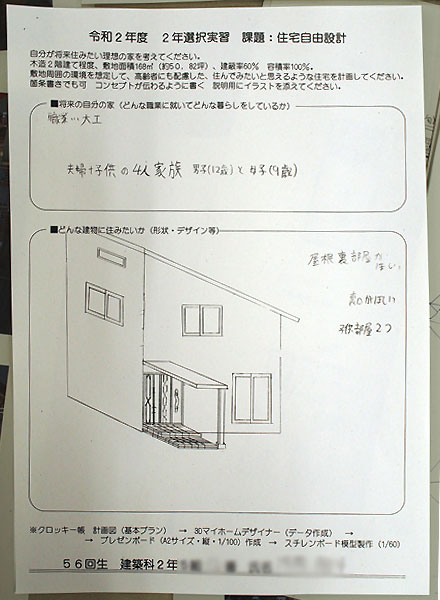 令和2年度 2年選択実習 課題：住宅自由設計
自分が将来住みたい理想の家を考えてください。
木造2階建て程度、敷地面積168㎡（約50．82坪）、建蔽率60％ 容積率100％。
敷地周囲の環境を想定して、高齢者にも配慮した、住んでみたいと思えるような住宅を計画してください。
箇条書きでも可 コンセプトが伝わるように書く 説明用にイラストを添えてください。
■将来の自分の家（どんな職業に就いてどんな暮らしをしているか）
職業：大工
夫婦+子供の4人家族 男子(12歳)と女子(9歳)
■どんな建物に住みたいか（形状・デザイン等）
屋根裏部屋が
ほしい
がほしい
子供部屋2つ
※クロッキー帳 計画図（基本プラン） → 3Dマイホームデザイナー（データ作成） →
→ プレゼンボード（A2サイズ・縦・1/100）作成 → スチレンボード模型製作（1/60）
56回生 建築科2年